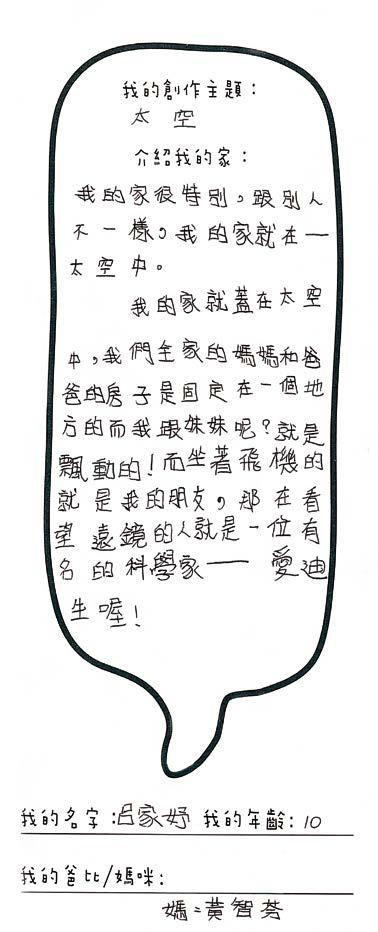 我的創作主題：
太空
介紹我的家：
我的家很特別，跟別人
不一樣，我的家就在—
太空中。
我的家就蓋在太空
中，我們全家的媽媽和爸
爸的房子是固定在一個地
方的而我跟妹妹呢？就是
飄動的！而坐著飛機的
就是我的朋友，那在看
望遠鏡的人就是一位有
名的科學家—— 愛迪
生喔！
我的名字：呂家妤 我的年齡：10
我的爸比/媽咪：
媽：黃智芬